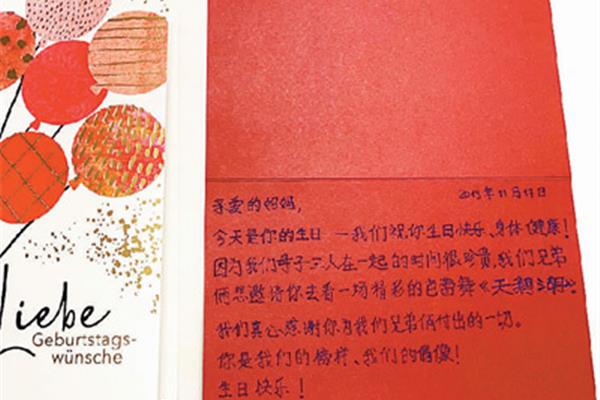 Liebe
Geburtstags-
wünsche
2019年11月17日
亲爱的妈妈,
今天是你的生日 — 我们祝你生日快乐、身体健康!
因为我们母子三人在一起的时间很珍贵,我们兄弟
俩想邀请你去看一场精彩的芭蕾舞《天鹅湖》。
我们真心感谢你为我们兄弟俩付出的一切。
你是我们的榜样、我们的偶像!
生日快乐!